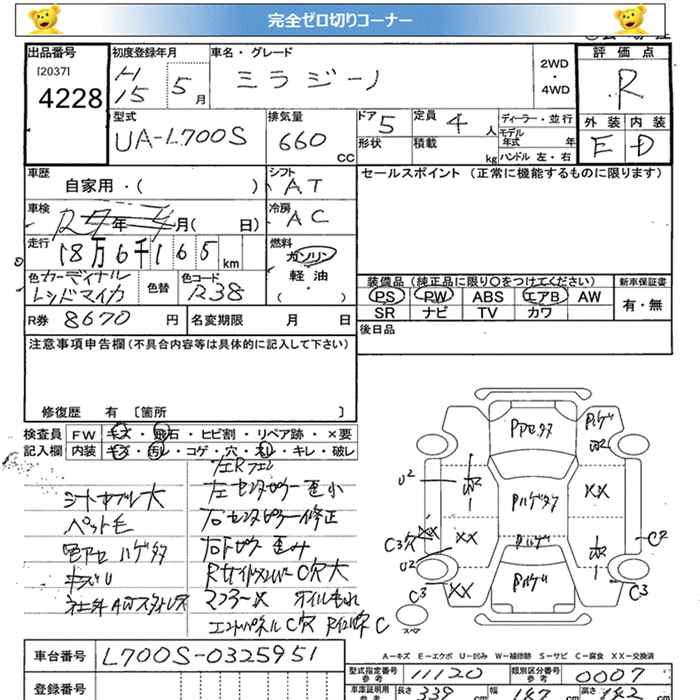 完全ゼロ切りコーナー
出品番号
[2037]
4228
初度登録年月
H
15 5 月
車名・グレード
ミラジーノ
2WD
・
4WD
評価点
R
型式
UA-L700S
排気量
660 CC
ドア 5
形状
定員 4 人
積載 kg
ディーラー・並行
モデル
年式 年
ハンドル 左・右
外装 内装
E D
車歴
自家用・( )
シフト
AT
車検
年 月( 日)
冷房
AC
走行
18万6千165 km
燃料
ガソリン
軽油
( ・ )
色 カーディナル
レッドマイカ
色替
色コード
R38
R券 8670 円
名変期限 月 日
セールスポイント (正常に機能するものに限ります)
装備品 (純正品に限り○をつけてください)
PS PW ABS エアB AW
SR ナビ TV カワ
新車保証書
有・無
後日品
注意事項申告欄 (不具合内容等は具体的に記入して下さい)
修復歴 有 〔箇所 〕
検査員
記入欄
FW キズ・飛石・ヒビ割・リペア跡・×要
内装 キズ・汚レ・コゲ・穴・ネレ・キレ・破レ
左Rフェン
左センタピラー歪小
右センタピラー修正
シートカブレ大
ペット毛
キズU
Rサイドメンバー C穴大
マフラーX オイルもれ
エンドパネルC穴
PハゲU
U2
XX
C3
C2
スペア
A-キズ E-エクボ U-凹み W-補修跡 S-サビ C-腐食 XX-交換済
車台番号 L700S-0325951
登録番号
型式指定番号
参考 11120
類別区分番号
参考 0007
車庫証明用
参考 長さ 339 cm 幅 147 cm 高さ cm